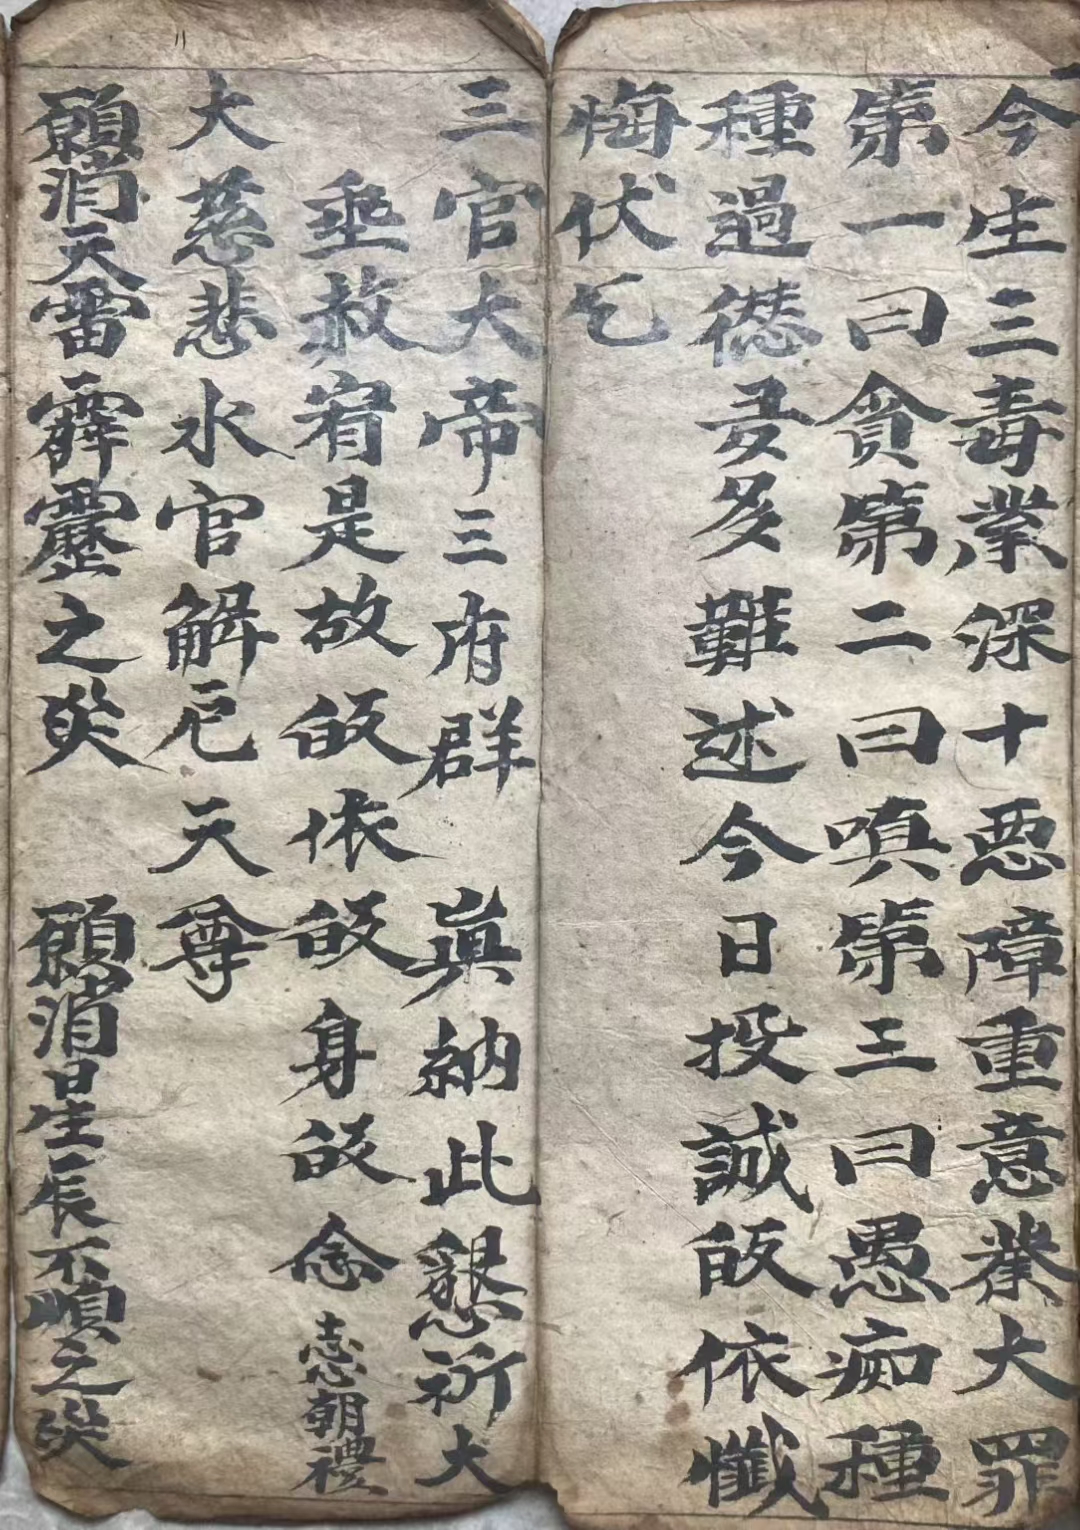 今生三毒業深十惡障重意大罪
第一曰貪第二曰嗔第三曰愚痴種
種過愆多難述今日投誠皈依懺
悔伏乞
三官大帝三府群 眞納此懇祈大
垂赦宥是故皈依皈身皈念 志心朝禮
大慈悲水官解厄天尊
願消天雷霹靂之災 願消日生辰不順之災